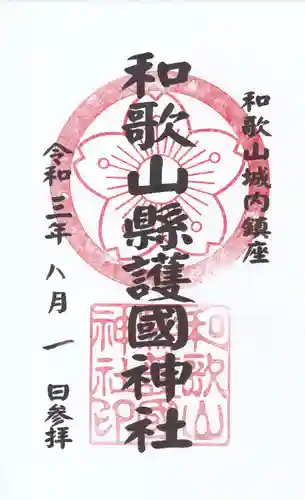 和歌山城内鎮座
和歌山縣護國神社
令和三年八月一日参拝
和歌山
縣護國
神社印